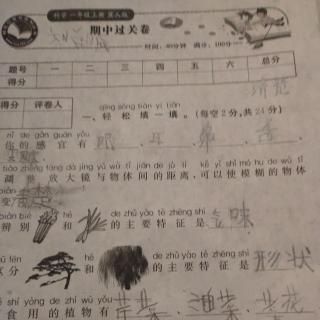 科学 一年级上册 冀人版
期中过关卷
时间：40分钟 满分：100分
题号 一 二 三 四 五 六 总分
得分
得分 评卷人
qīng sōng tián yì tián
一、轻松填一填。（每空2分，共24分）
nǐ de gǎn guān yǒu
你的感官有 眼、耳、鼻、舌、
tiáo zhěng fàng dà jìng yǔ wù tǐ jiān de jù lí kě yǐ shǐ mó hu de wù tǐ
调整放大镜与物体间的距离，可以使模糊的物体
biàn
变
biàn bié hé de zhǔ yào tè zhēng shì
辨别 和 的主要特征是 气味
qū fēn hé de zhǔ yào tè zhēng shì
区分 和 的主要特征是 形状
shí yòng de zhí wù yǒu
食用的植物有 芹菜、油菜、